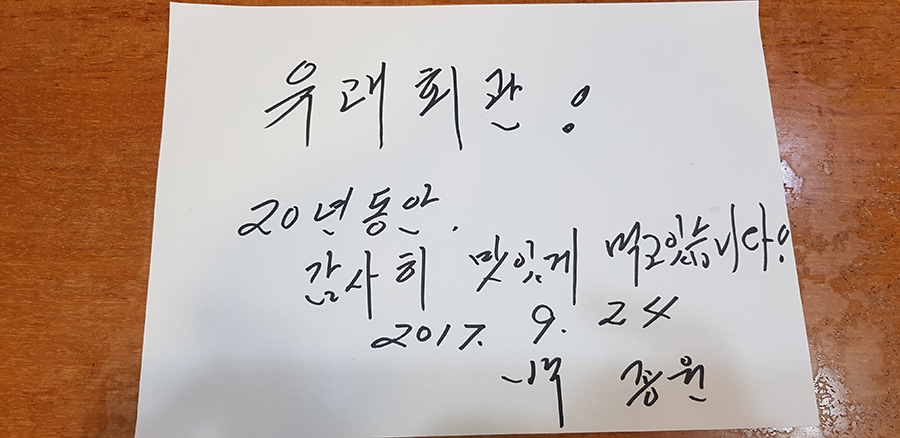 유래회관!
20년동안.
감사히 맛있게 먹고있습니다!
2017. 9. 24
백 종원